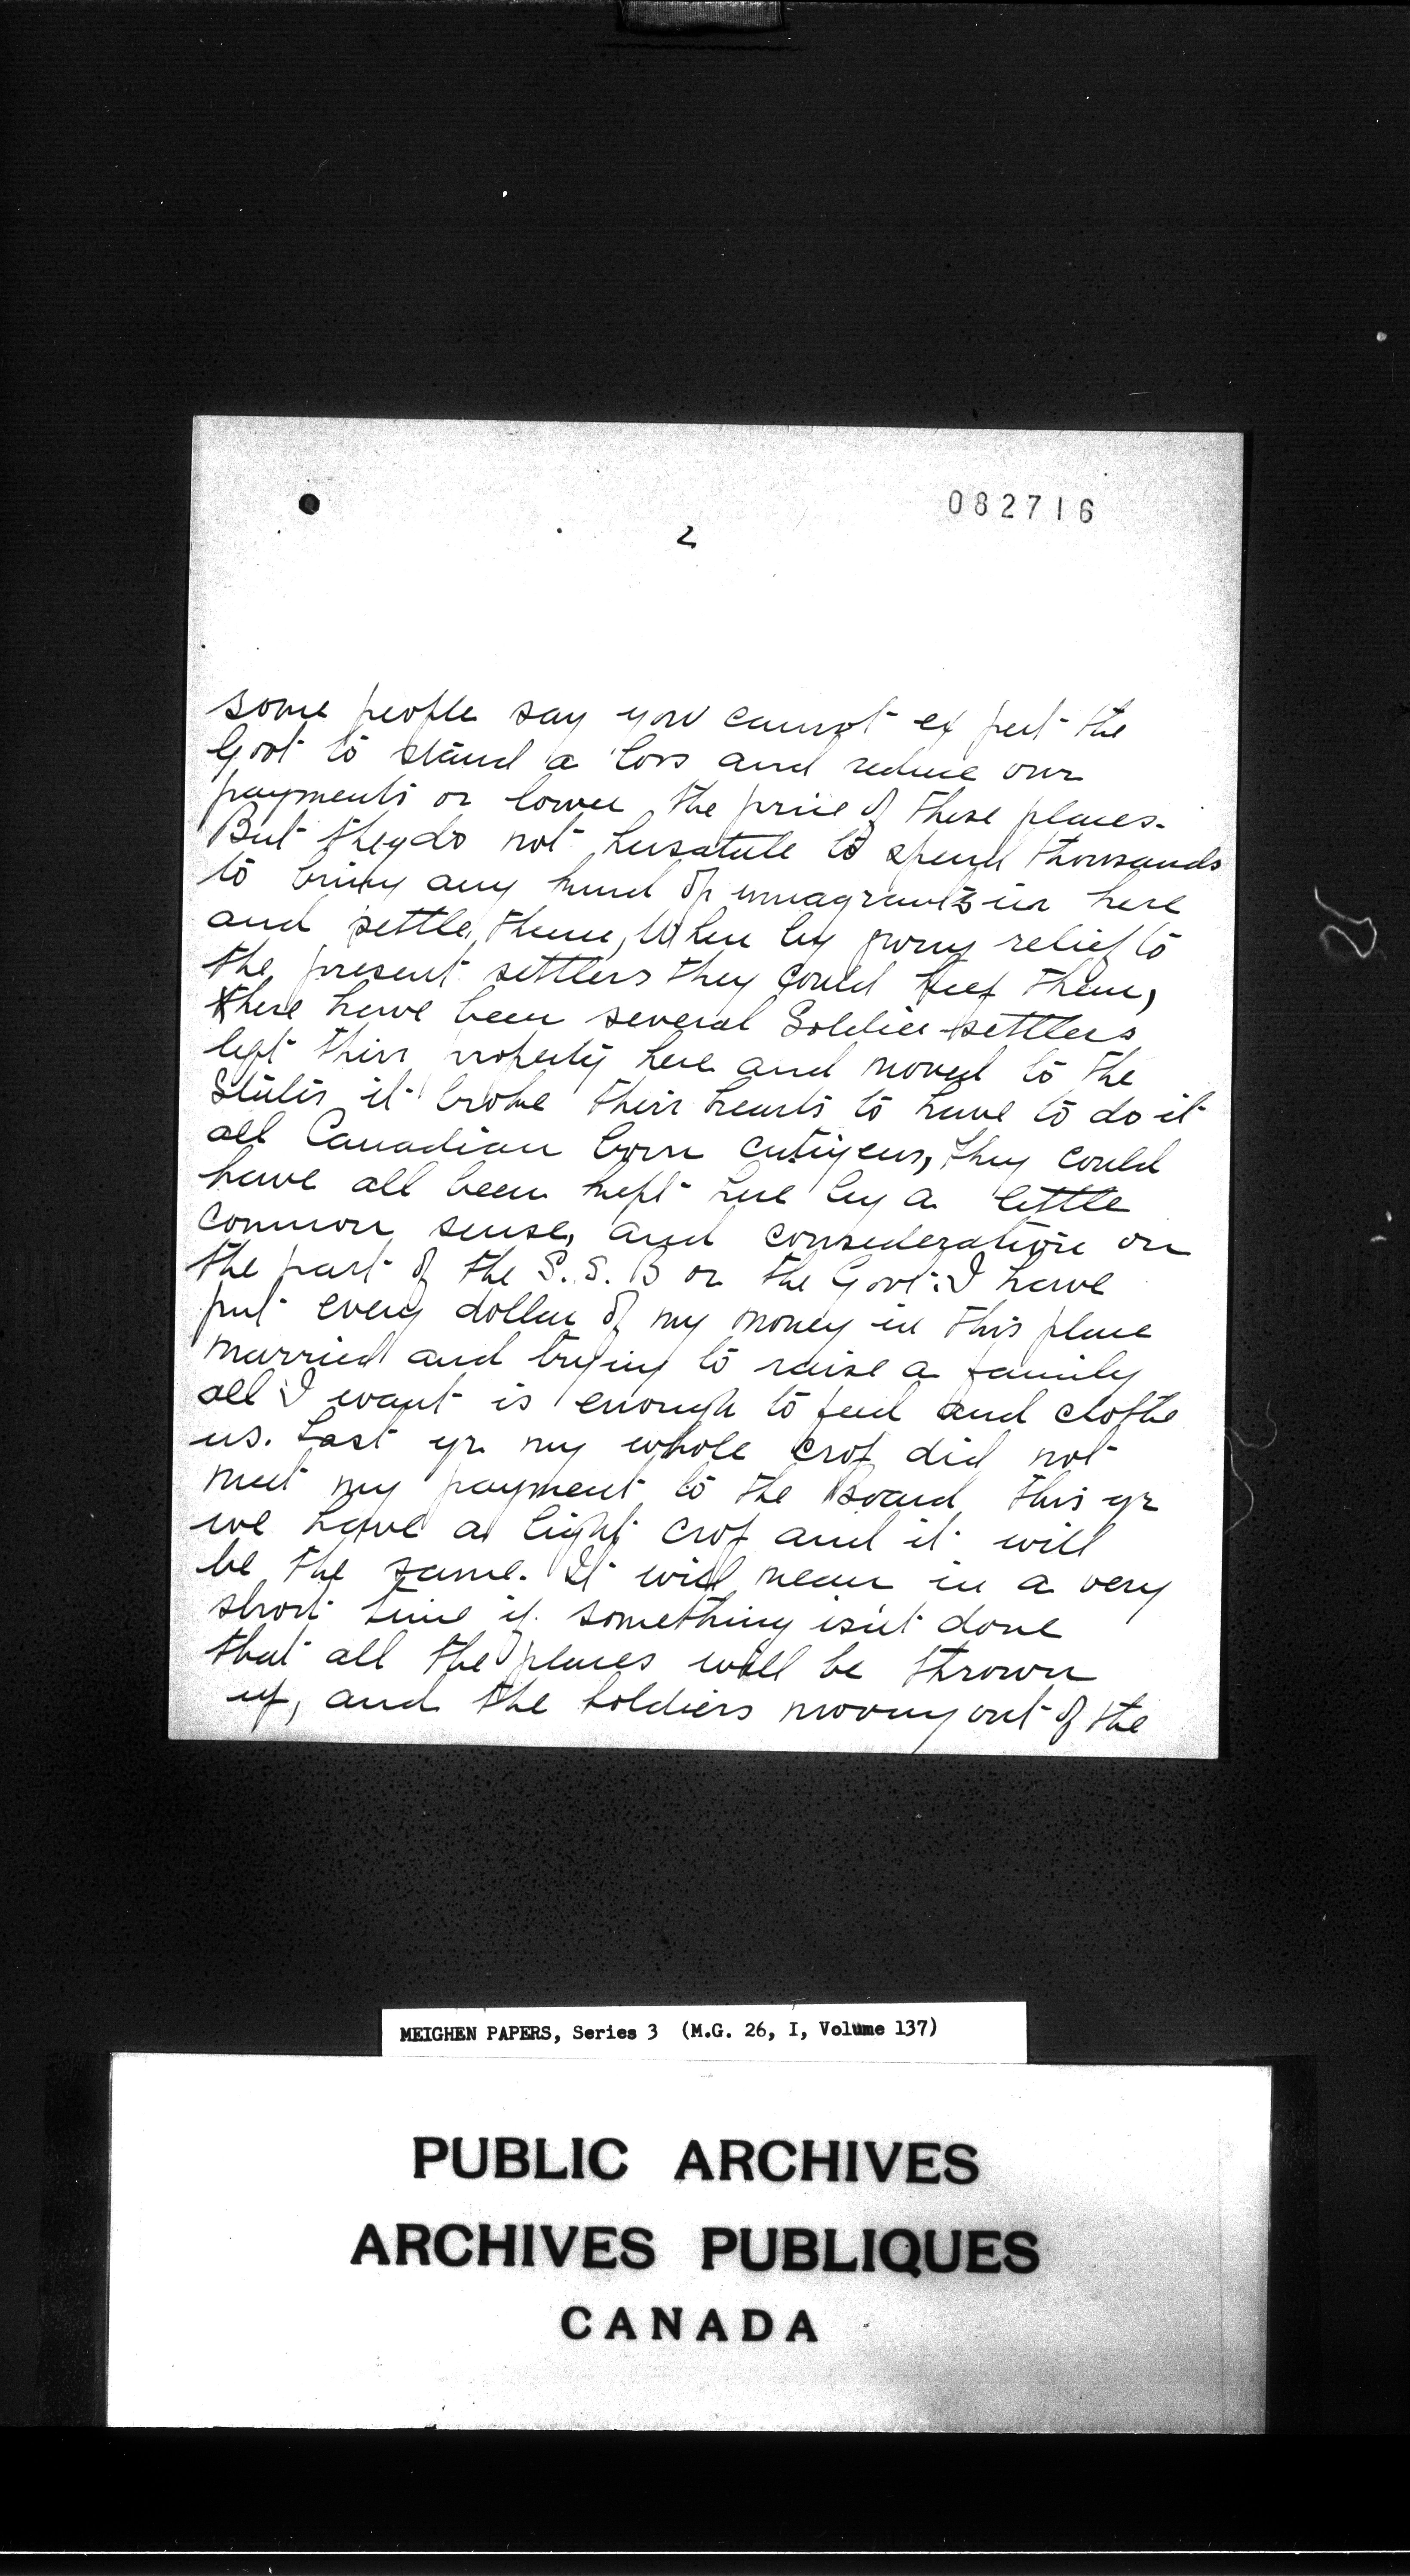 082716
2
some people say you cannot expect the
Govt to stand a loss and reduce our
payments or lower the price of these places.
But they do not hesatate to spend thousands
to bring any kind of immagrants in here
and settle them, When by giving relief to
the present settlers they could keep them,
there have been several Soldier settlers
left thier property here and moved to the
States it broke thier hearts to have to do it
all Canadian born citizens, they could
have all been kept here by a little
common sense, and consideration on
the part of the S.S.B or the Govt. I have
put every dollar of my money in this place
married and trying to raise a family
all I want is enough to feed and clothe
us. Last yr my whole crop did not
meet my payment to the Board this yr
we have a light crop and it will
be the same. It will mean in a very
short time if something isn't done
that all the places will be thrown
up, and the soldiers moving out of the
MEIGHEN PAPERS, Series 3 (M.G. 26, I, Volume 137)
PUBLIC ARCHIVES
ARCHIVES PUBLIQUES
CANADA